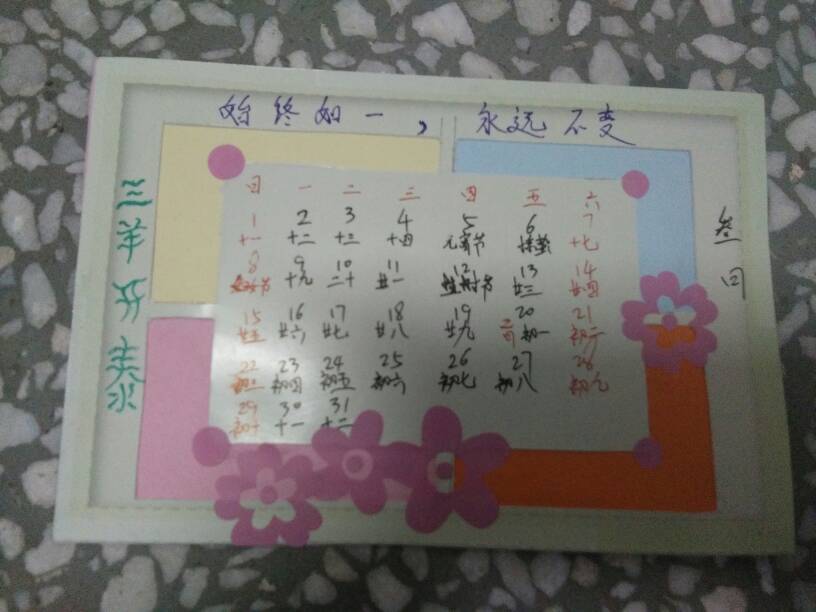 始终如一，永远不变
三羊开泰
叁曰
日 一 二 三 四 五 六
1 2 3 4 5 6 7
十一 十二 十三 十四 元宵节 惊蛰 十七
8 9 10 11 12 13 14
妇女节 十九 二十 廿一 植树节 廿三 廿四
15 16 17 18 19 20 21
廿五 廿六 廿七 廿八 廿九 二月 初一 初二
22 23 24 25 26 27 28
初三 初四 初五 初六 初七 初八 初九
29 30 31
初十 十一 十二